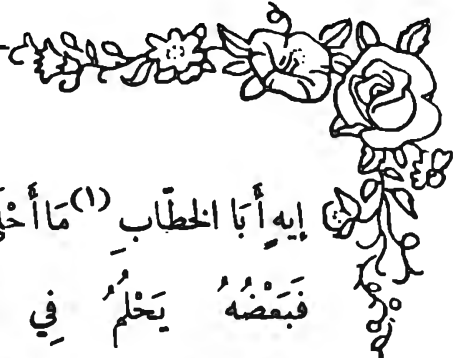 إيهِ أَبَا الخطّابِ (١) مَا أَحْ
فَبَعْضُهُ يَحْلُمُ فِي